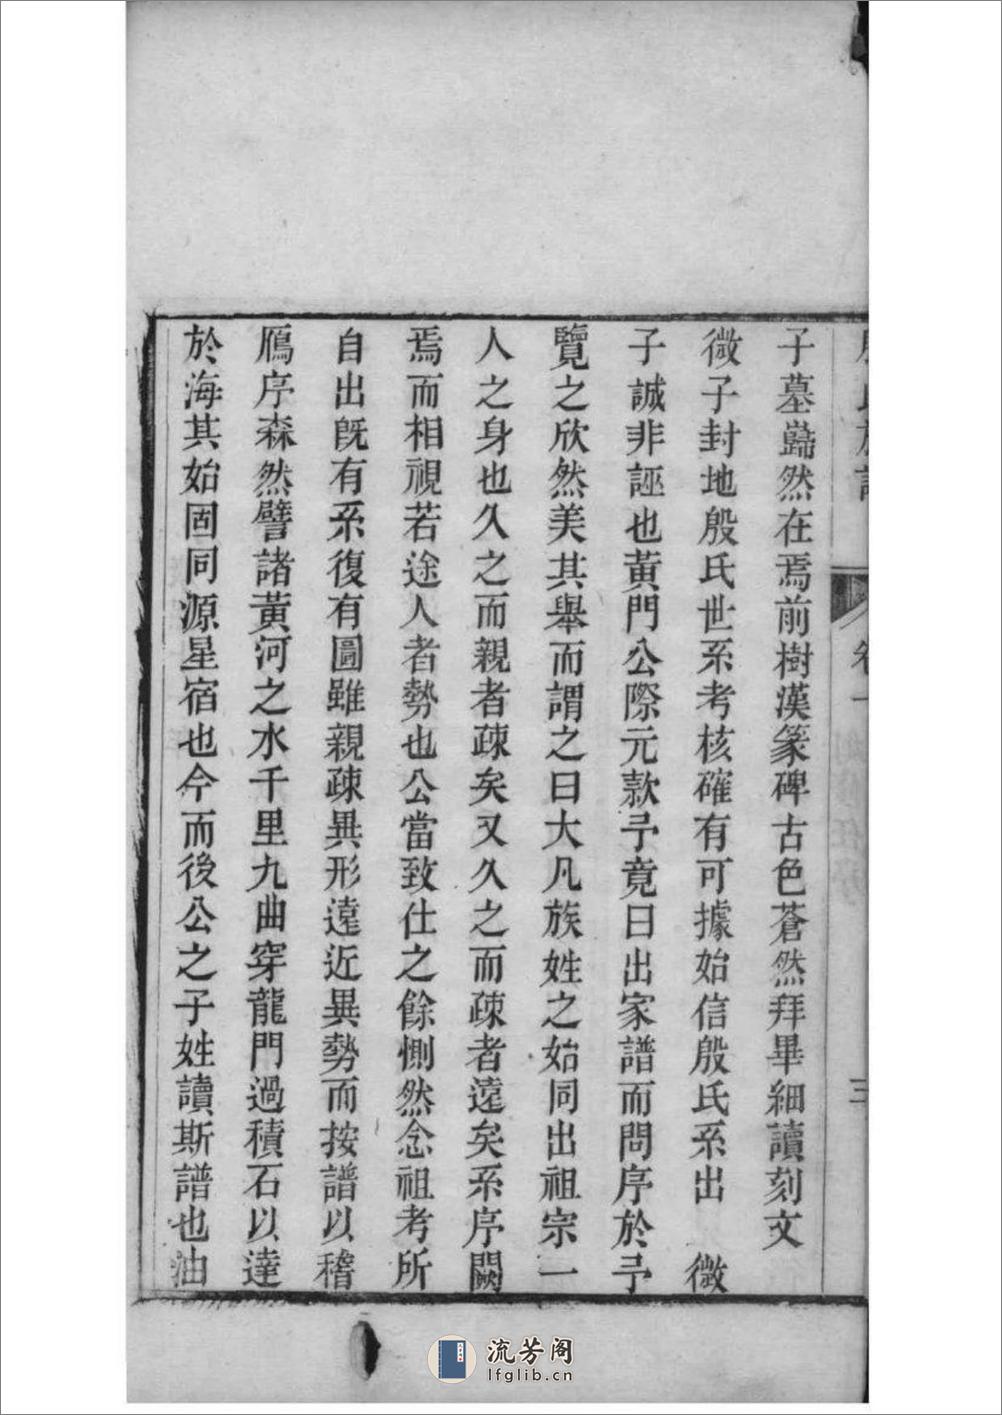 殷氏族譜 卷一 三
子墓巋然在焉前樹漢篆碑古色蒼然拜畢細讀刻文
微子封地殷氏世系考核確有可據始信殷氏系出 微
子誠非誣也黃門公際元款予竟日出家譜而問序於予
覽之欣然美其舉而謂之曰大凡族姓之始同出祖宗一
人之身也久之而親者疎矣又久之而疎者遠矣系序闕
焉而相視若途人者勢也公當致仕之餘惻然念祖考所
自出旣有系復有圖雖親疎異形遠近異勢而按譜以稽
鴈序森然譬諸黃河之水千里九曲穿龍門過積石以達
於海其始固同源星宿也今而後公之子姓讀斯譜也油
流芳阁
lfglib.cn